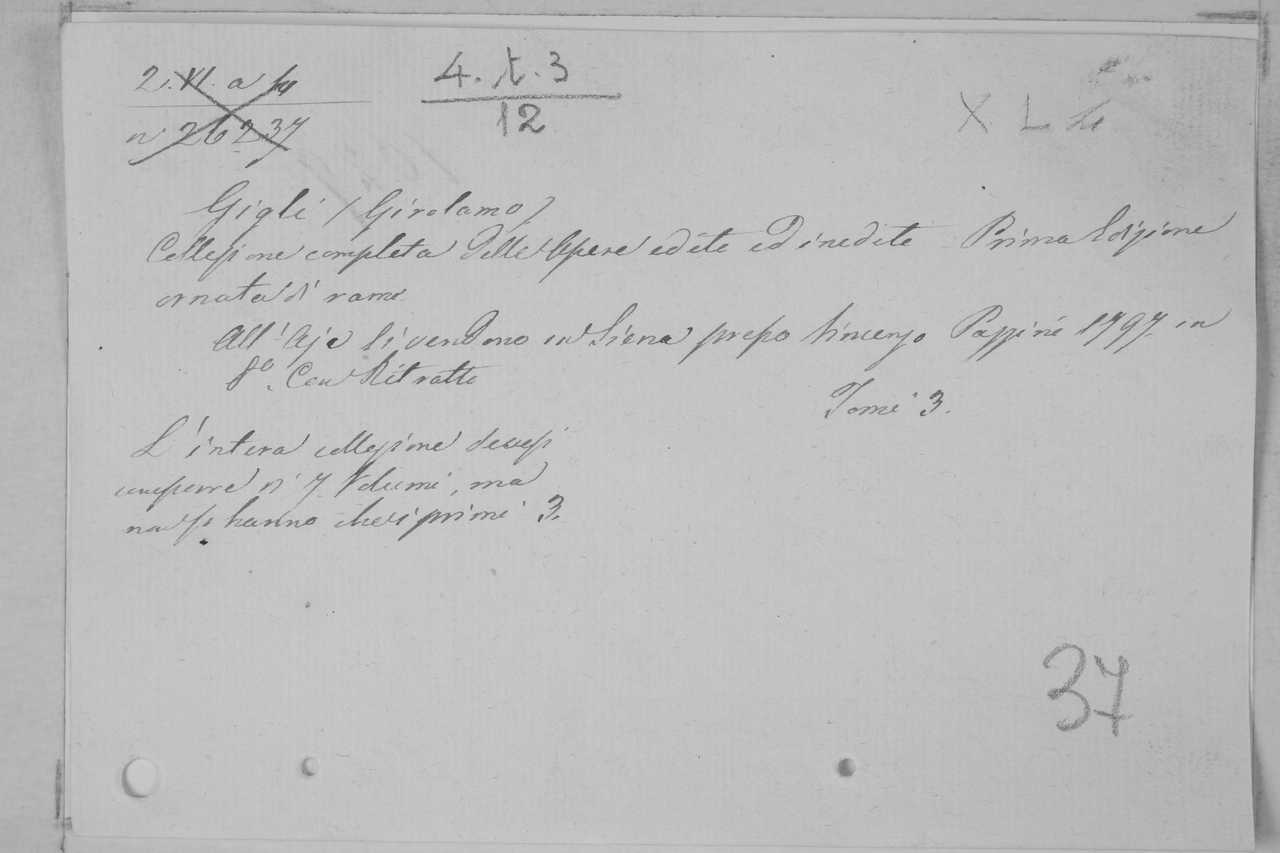 2. VI. a
n° 26237
4. t. 3
12
X. L
Gigli (Girolamo)
Collezione completa delle Opere edite ed inedite Prima Edizione
ornata di rami
All'Aja Si vendono in Siena presso Vincenzo Pazzini 1797. in
8°. Con Ritratto
Tomi 3.
L'intera collezione devesi
comporre di 7 Volumi, ma
non si hanno che i primi 3.
37